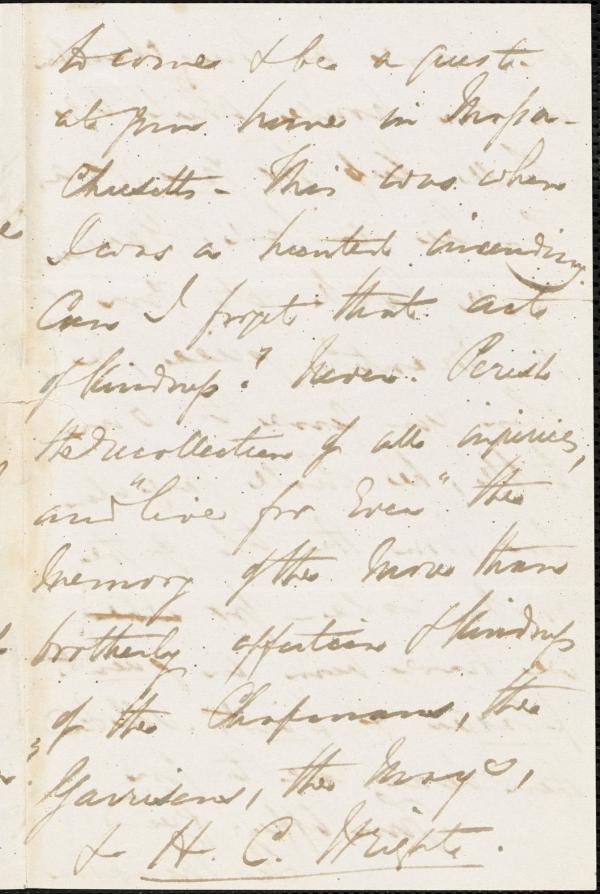 to come & be a guest
at your house in Massa-
chusetts - This was when
I was a hunted incendiary.
Can I forget that act
of kindness? Never. Perish
the recollection of all injuries,
and "live for Ever" the
memory of the more than
brotherly affection & kindness
of the Chapmans, the
Garrisons, the Mays,
& H. C. Wright.